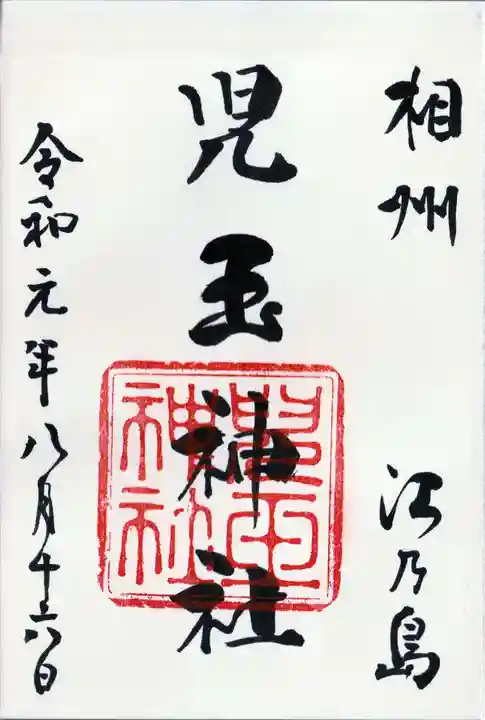 相州 江乃島
児玉神社
兒玉神社
令和元年八月十六日